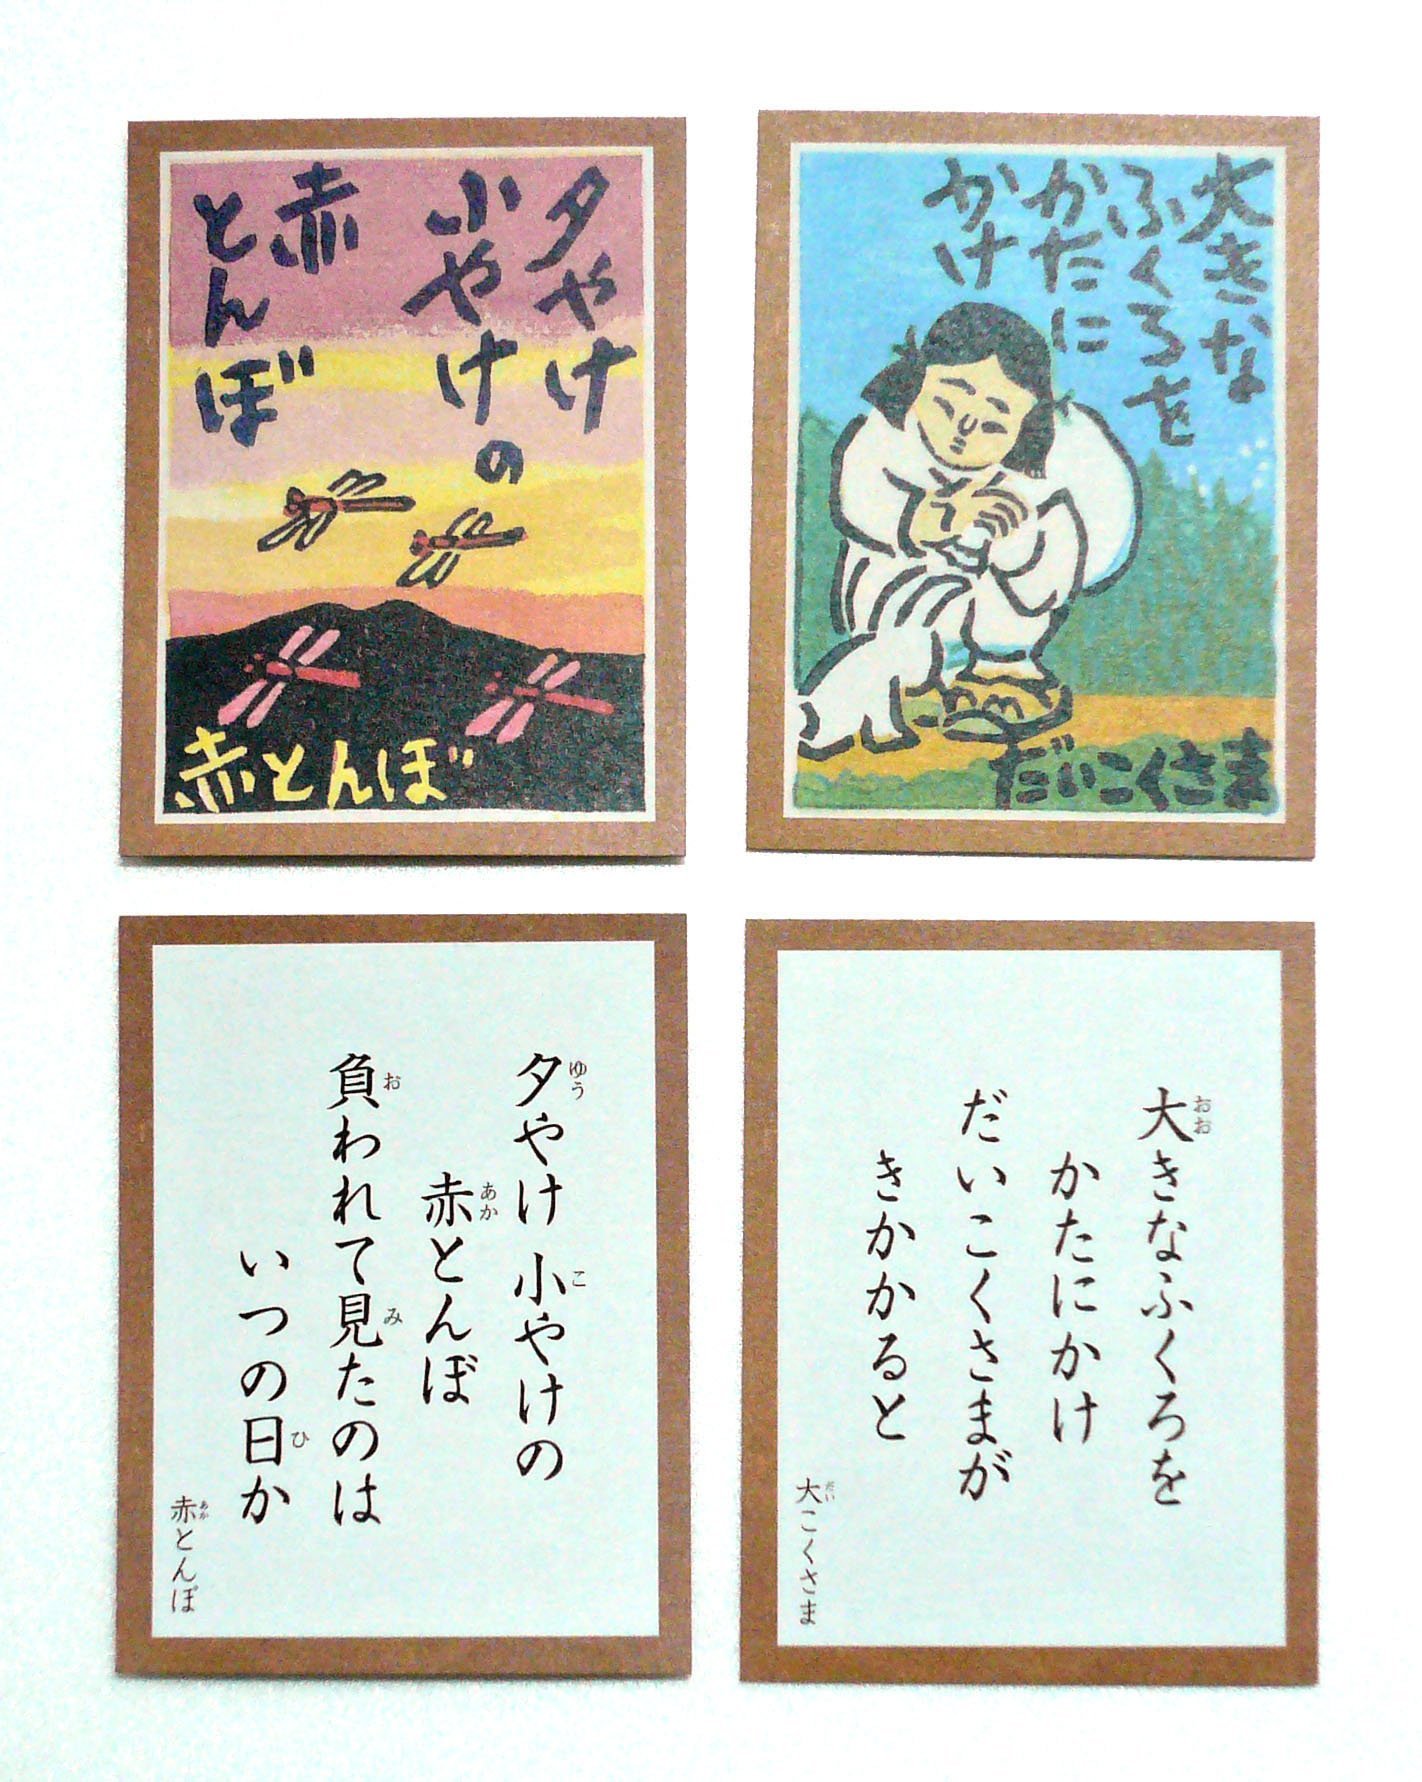 夕やけ
小やけの
赤
とんぼ
赤とんぼ
大きな
ふくろを
かたに
かけ
だいこくさま
夕やけ 小やけの
赤とんぼ
負われて見たのは
いつの日か
赤とんぼ
大きなふくろを
かたにかけ
だいこくさまが
きかかると
大こくさま